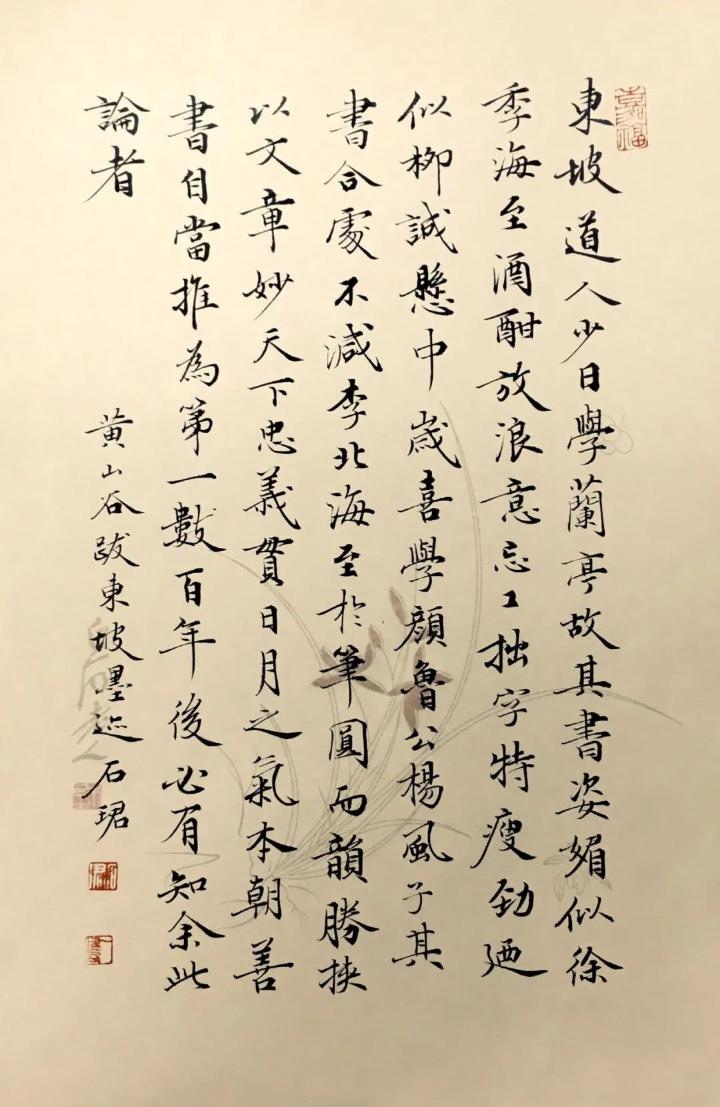 東坡道人少日學蘭亭故其書姿媚似徐
季海至酒酣放浪意忘工拙字特瘦劲乃
似柳誠懸中歲喜學顔魯公楊風子其
書合處不減李北海至於筆圓而韻勝挾
以文章妙天下忠義貫日月之氣本朝善
書自當推為第一數百年後必有知余此
論者
黄山谷跋東坡墨迹石珺